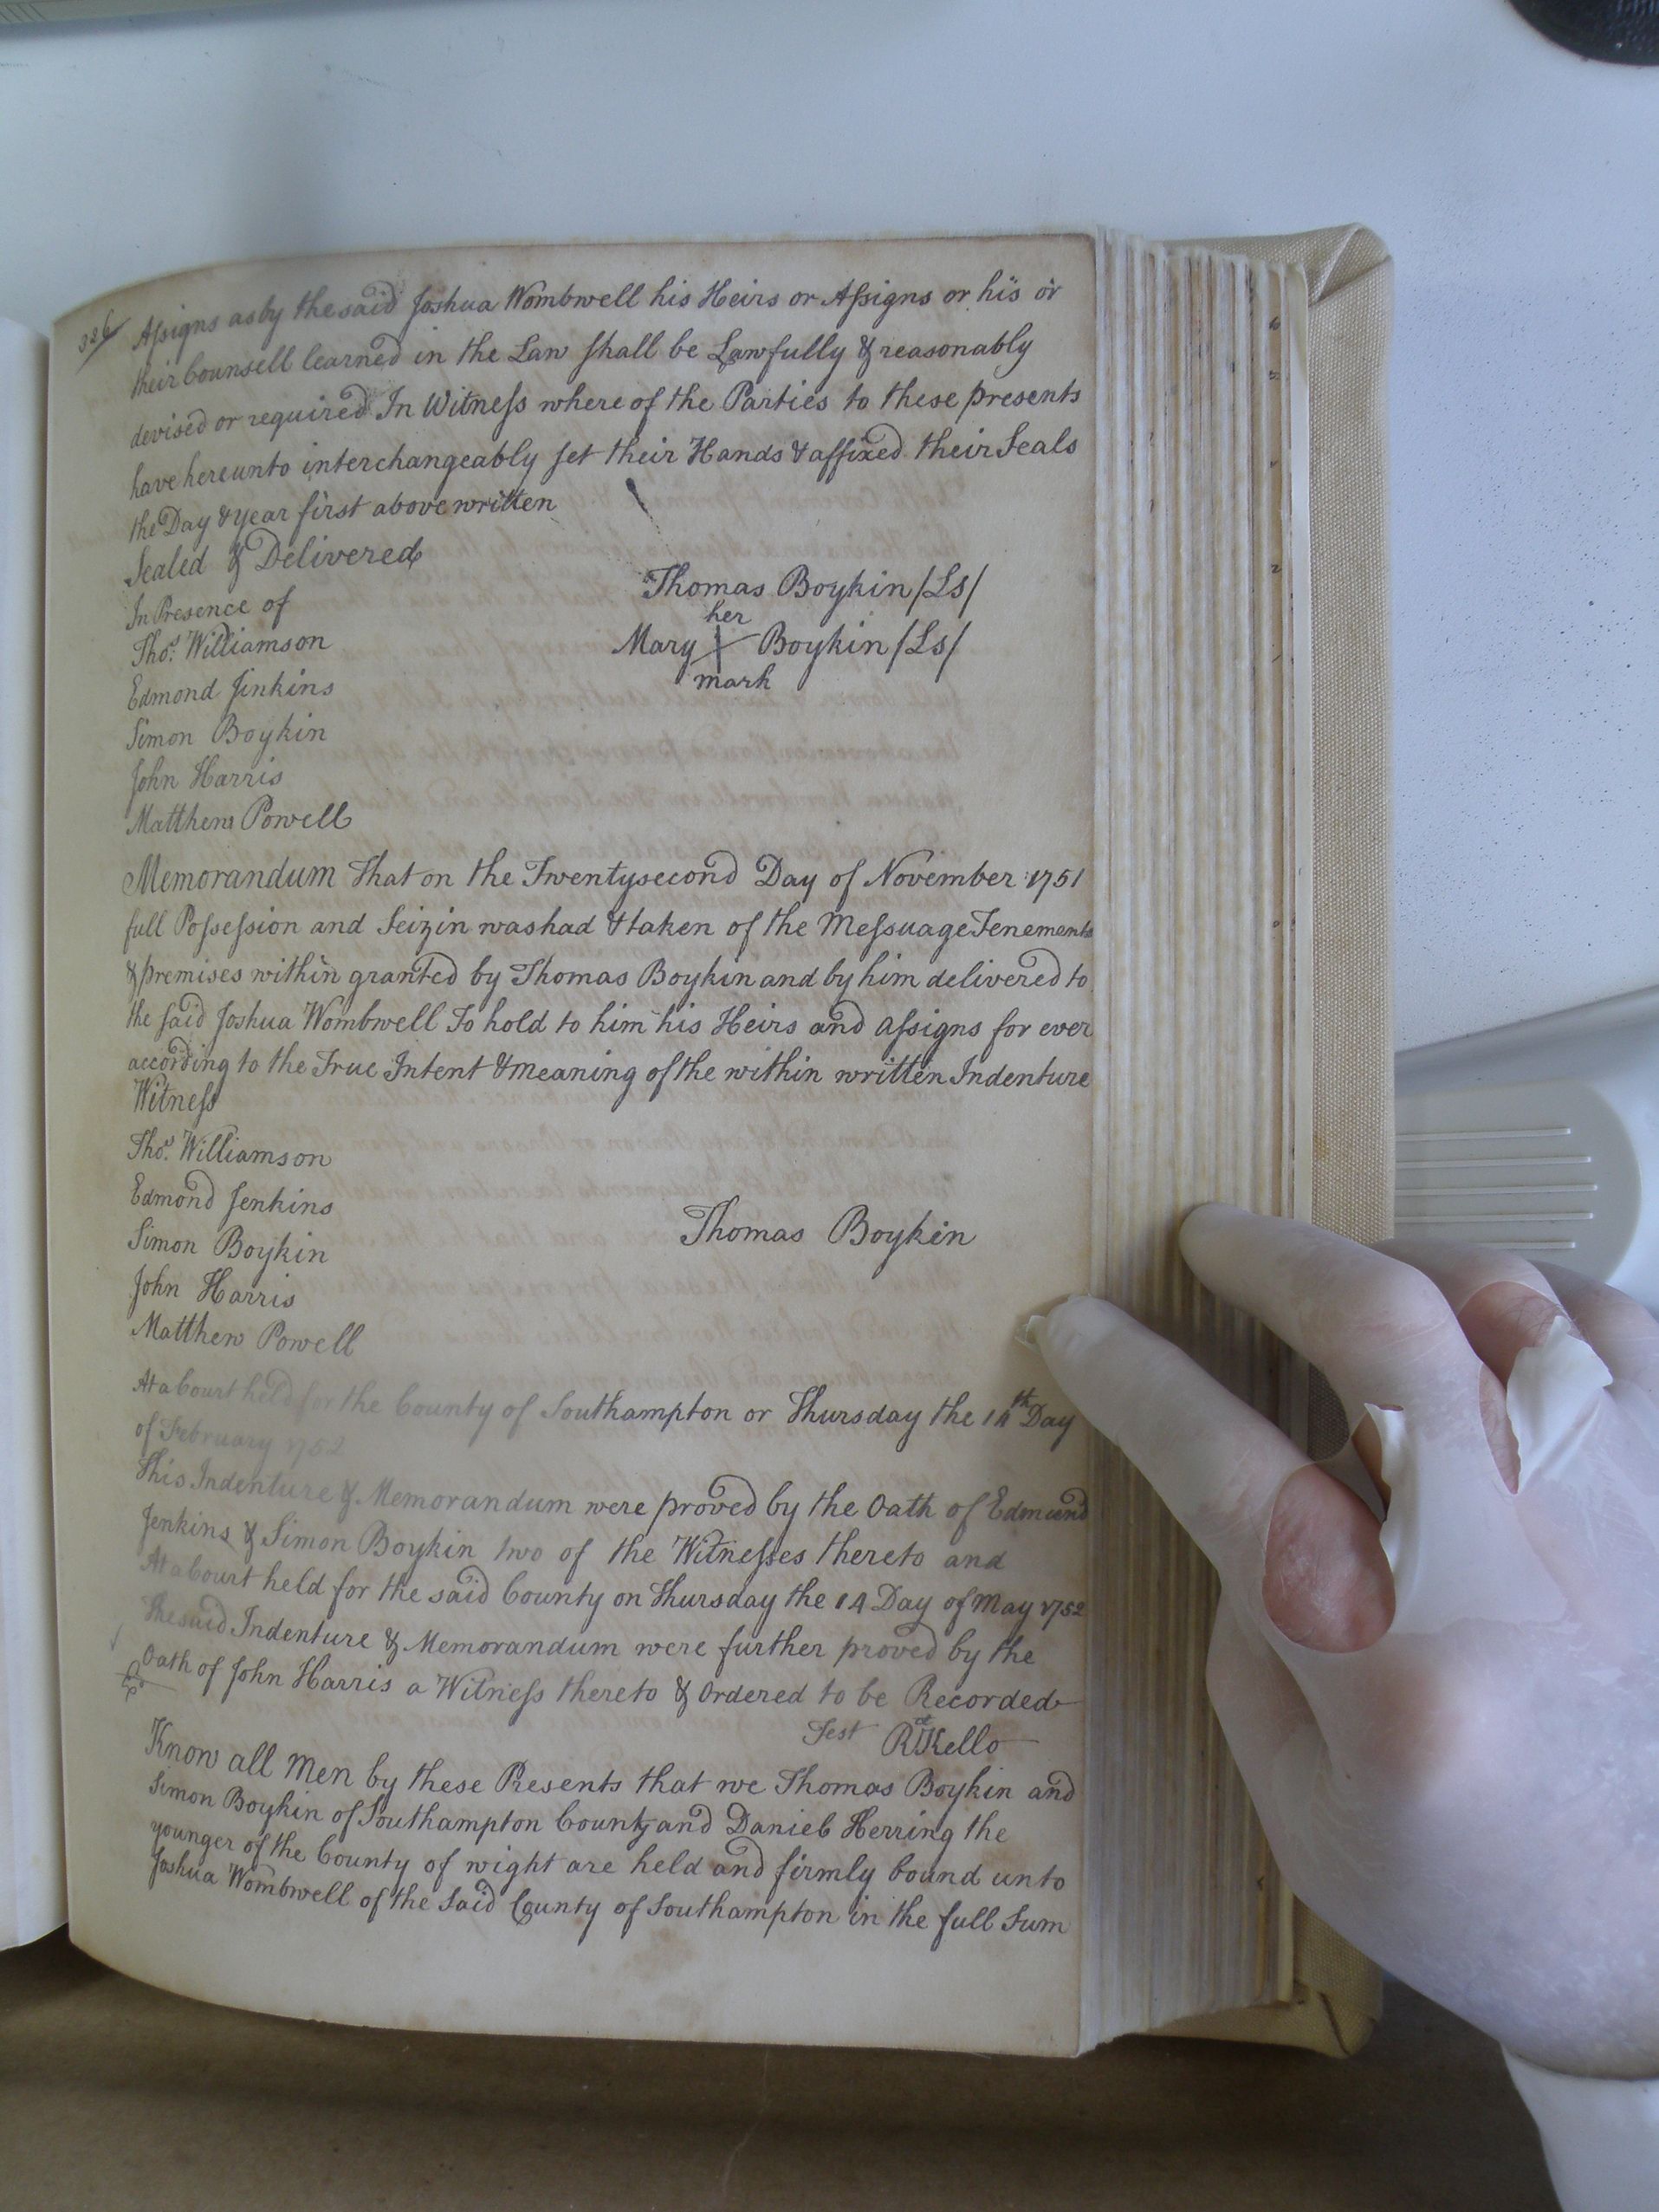 326
Assigns as by the said Joshua Wombwell his Heirs or Assigns or his or
their Counsell learned in the Law shall be Lawfully & reasonably
devised or required In Witness where of the Parties to these presents
have hereunto interchangeably set their Hands & affixed their Seals
the Day & year first above written
Sealed & Delivered
In Presence of
Thomas Boykin /Ls/
her
Mary X Boykin /Ls/
mark
Thos. Williamson
Edmond Jinkins
Simon Boykin
John Harris
Matthew Powell
Memorandum That on the Twentysecond Day of November 1751
full Possession and Seizin was had & taken of the Messuage Tenements
& premises within granted by Thomas Boykin and by him delivered to
the said Joshua Wombwell To hold to him his Heirs and assigns for ever
according to the True Intent & meaning of the within written Indenture
Witness
Thos. Williamson
Edmond Jenkins
Simon Boykin
Thomas Boykin
John Harris
Matthew Powell
At a Court held for the County of Southampton or Thursday the 14th Day
of February 1752
This Indenture & Memorandum were proved by the Oath of Edmund
Jenkins & Simon Boykin two of the Witnesses thereto and
At a Court held for the said County on Thursday the 14 Day of May 1752
The said Indenture & Memorandum were further proved by the
Oath of John Harris a Witness thereto & Ordered to be Recorded
Test Rd Kello
Know all Men by these Presents that we Thomas Boykin and
Simon Boykin of Southampton County and Daniel Herring the
younger of the County of wight are held and firmly bound unto
Joshua Wombwell of the Said County of Southampton in the full Sum